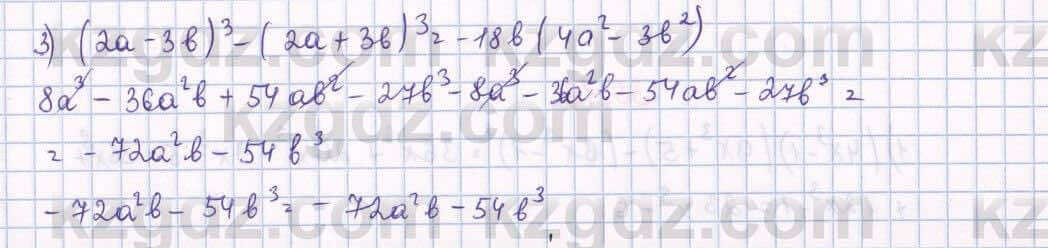 3) (2a - 3b)³ - (2a + 3b)³ = -18b (4a² - 3b²)
8a³ - 36a²b + 54ab² - 27b³ - 8a³ - 36a²b - 54ab² - 27b³ =
= - 72a²b - 54b³
- 72a²b - 54b³ = - 72a²b - 54b³
kzgdz.com